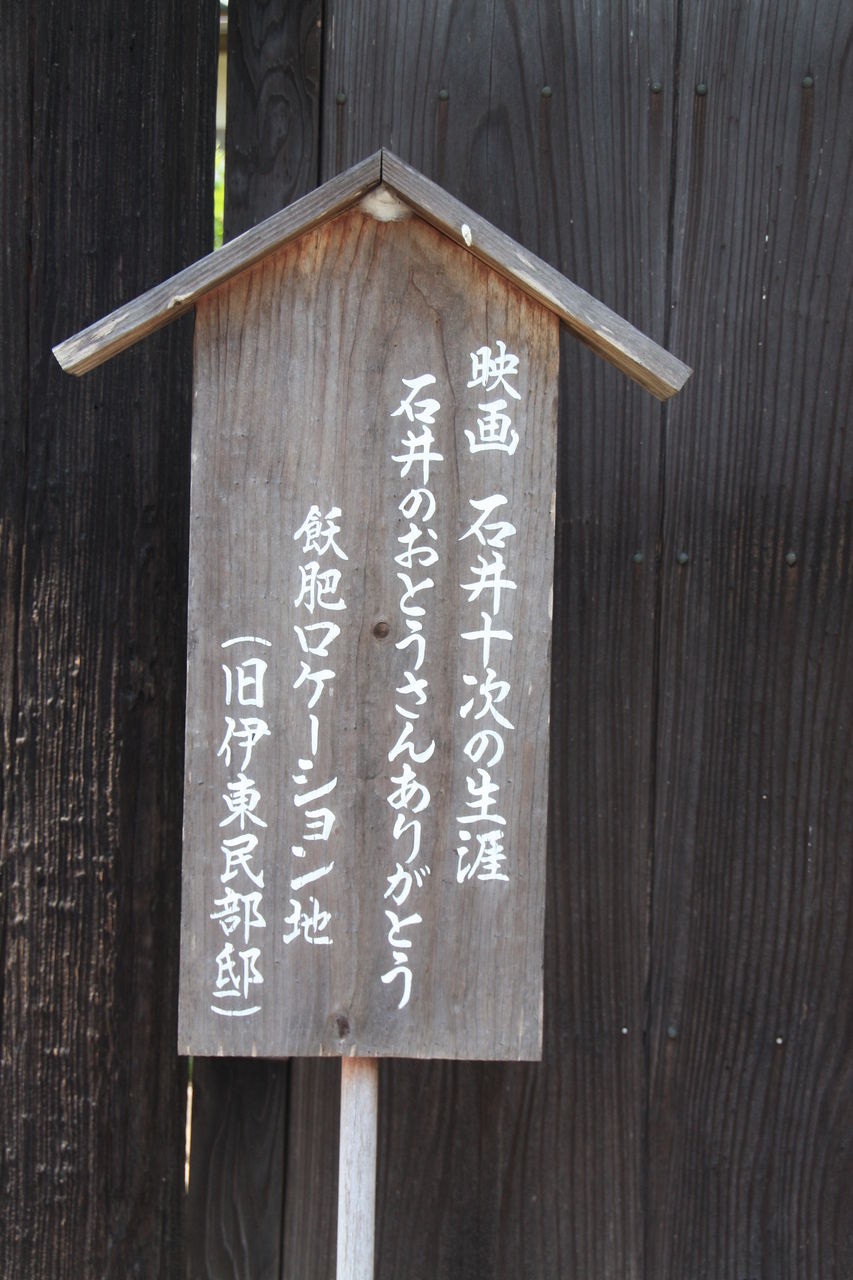 映画 石井十次の生涯
石井のおとうさんありがとう
飫肥ロケーション地
(旧伊東民部邸)